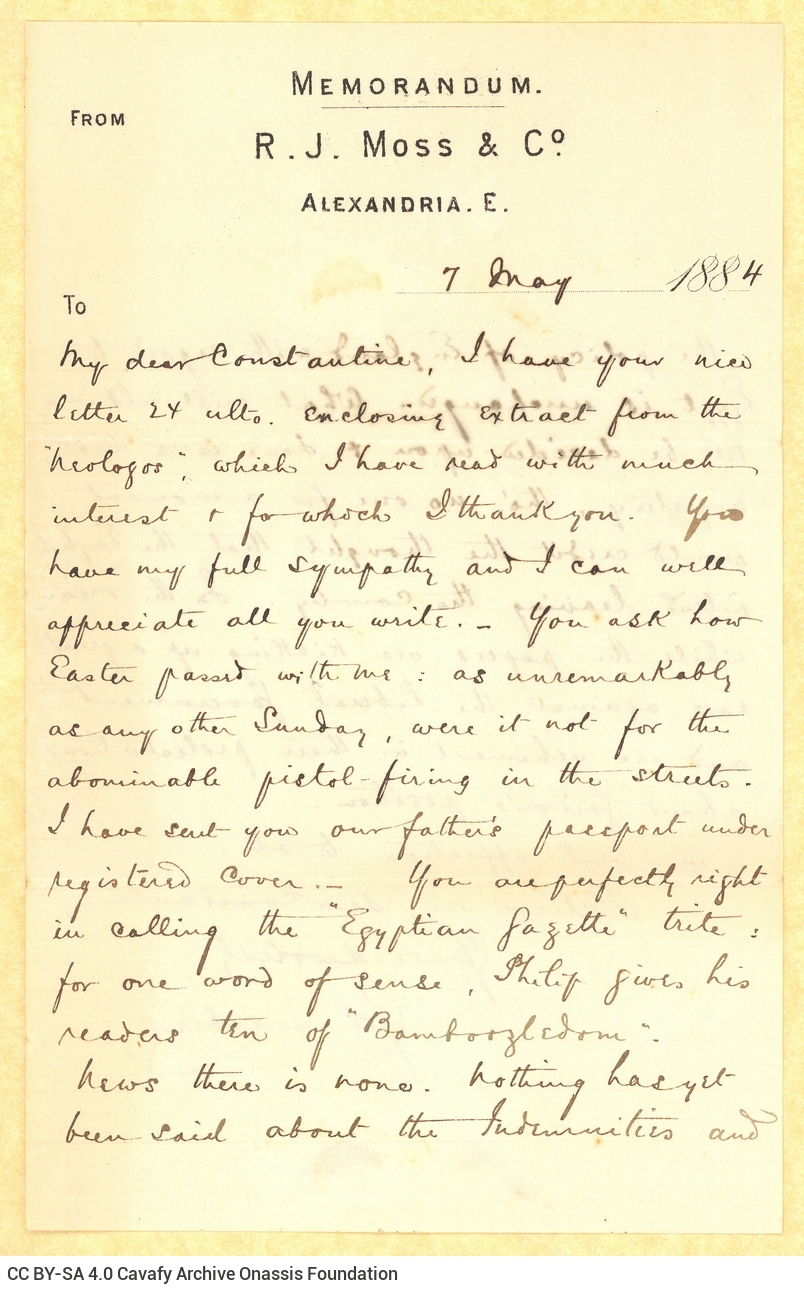 MEMORANDUM.
FROM
R. J. Moss & Cº
ALEXANDRIA. E.
7 May 1884
To
My dear Constantine, I have your nice
letter 24 ulto. enclosing extract from the
"Neologos", which I have read with much
interest & for which I thank you. You
have my full sympathy and I can well
appreciate all you write. – You ask how
Easter passed with me : as unremarkably
as any other Sunday, were it not for the
abominable pistol-firing in the streets.
I have sent you our father's passport under
registered cover. – You are perfectly right
in calling the "Egyptian Gazette" trite :
for one word of sense, Philip gives his
readers ten of "Bamboozledom".
News there is none. Nothing has yet
been said about the Indemnities and
CC BY-SA 4.0 Cavafy Archive Onassis Foundation